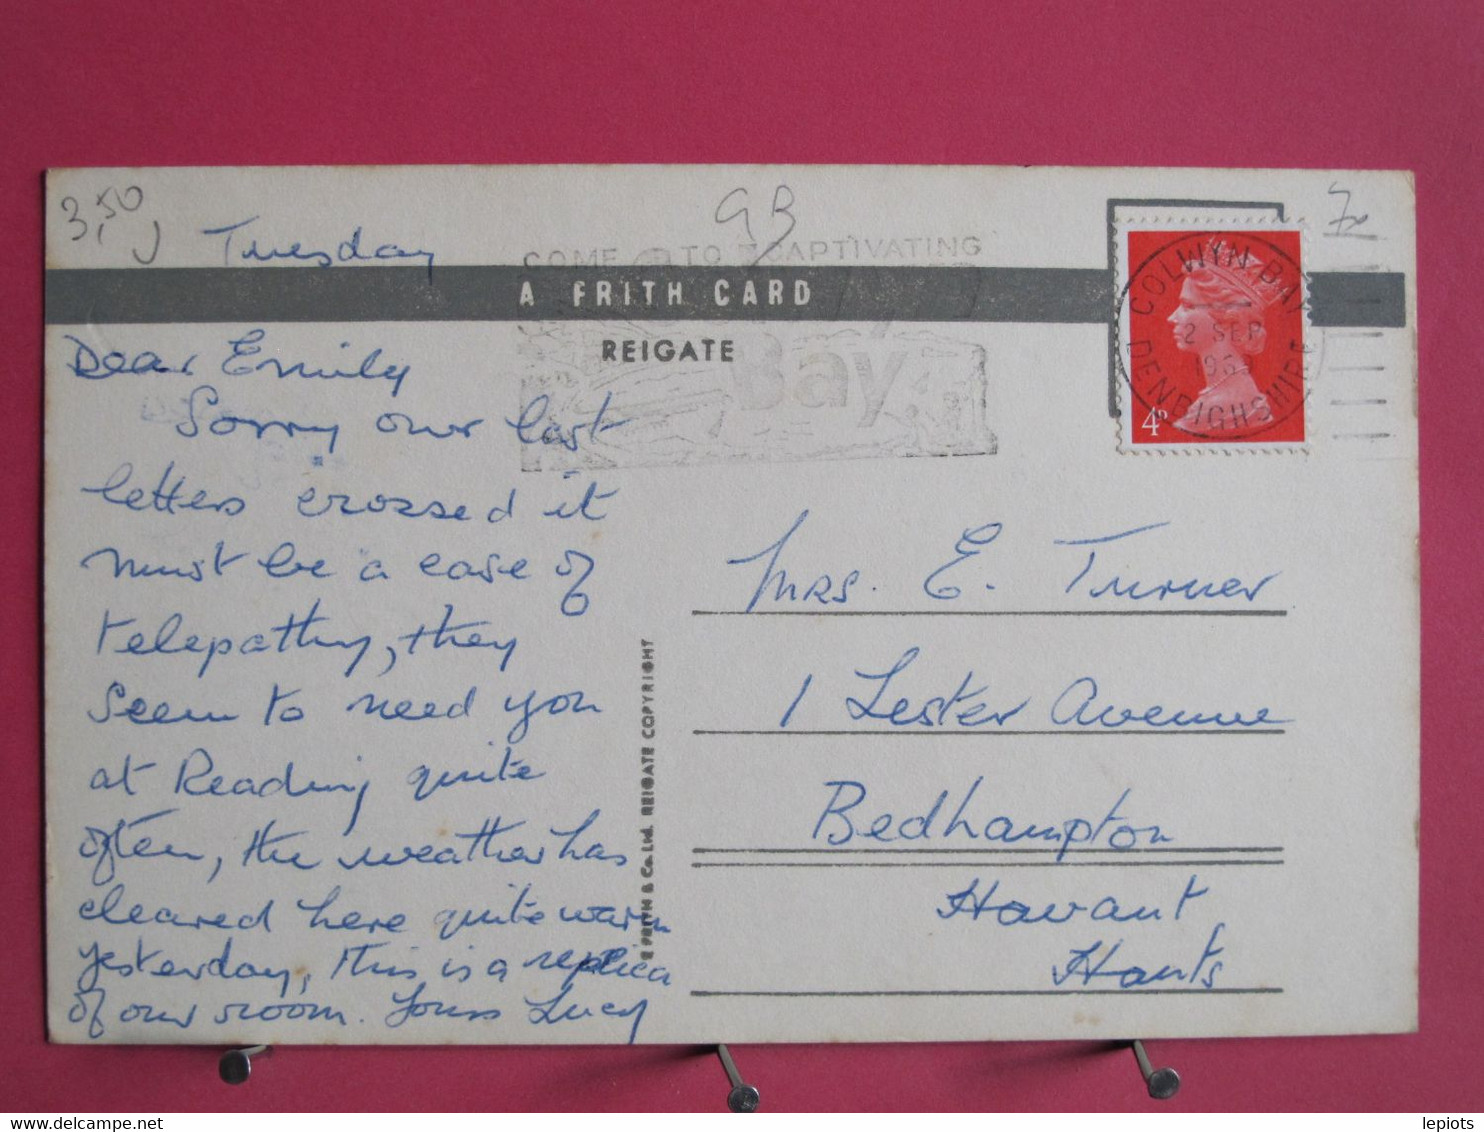 3,50
GB
Tuesday
COME TO CAPTIVATING
Bay
A FRITH CARD
REIGATE
COLWYN BAY
2 SEP
DENBIGHSHIRE
4D
Dear Emily
Sorry our last
letters crossed it
must be a case of
telepathy, they
seem to need you
at Reading quite
often, the weather has
cleared here quite warm
yesterday, this is a replica
of our room. Yours Lucy
Mrs. E. Turner
1 Lester Avenue
Bedhampton
Havant
Hants
FRITH & Co. Ltd. REIGATE COPYRIGHT
delcampe.net
lepiots